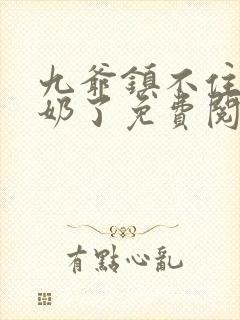 九爺鎮不住
奶了免費閱
有點心亂